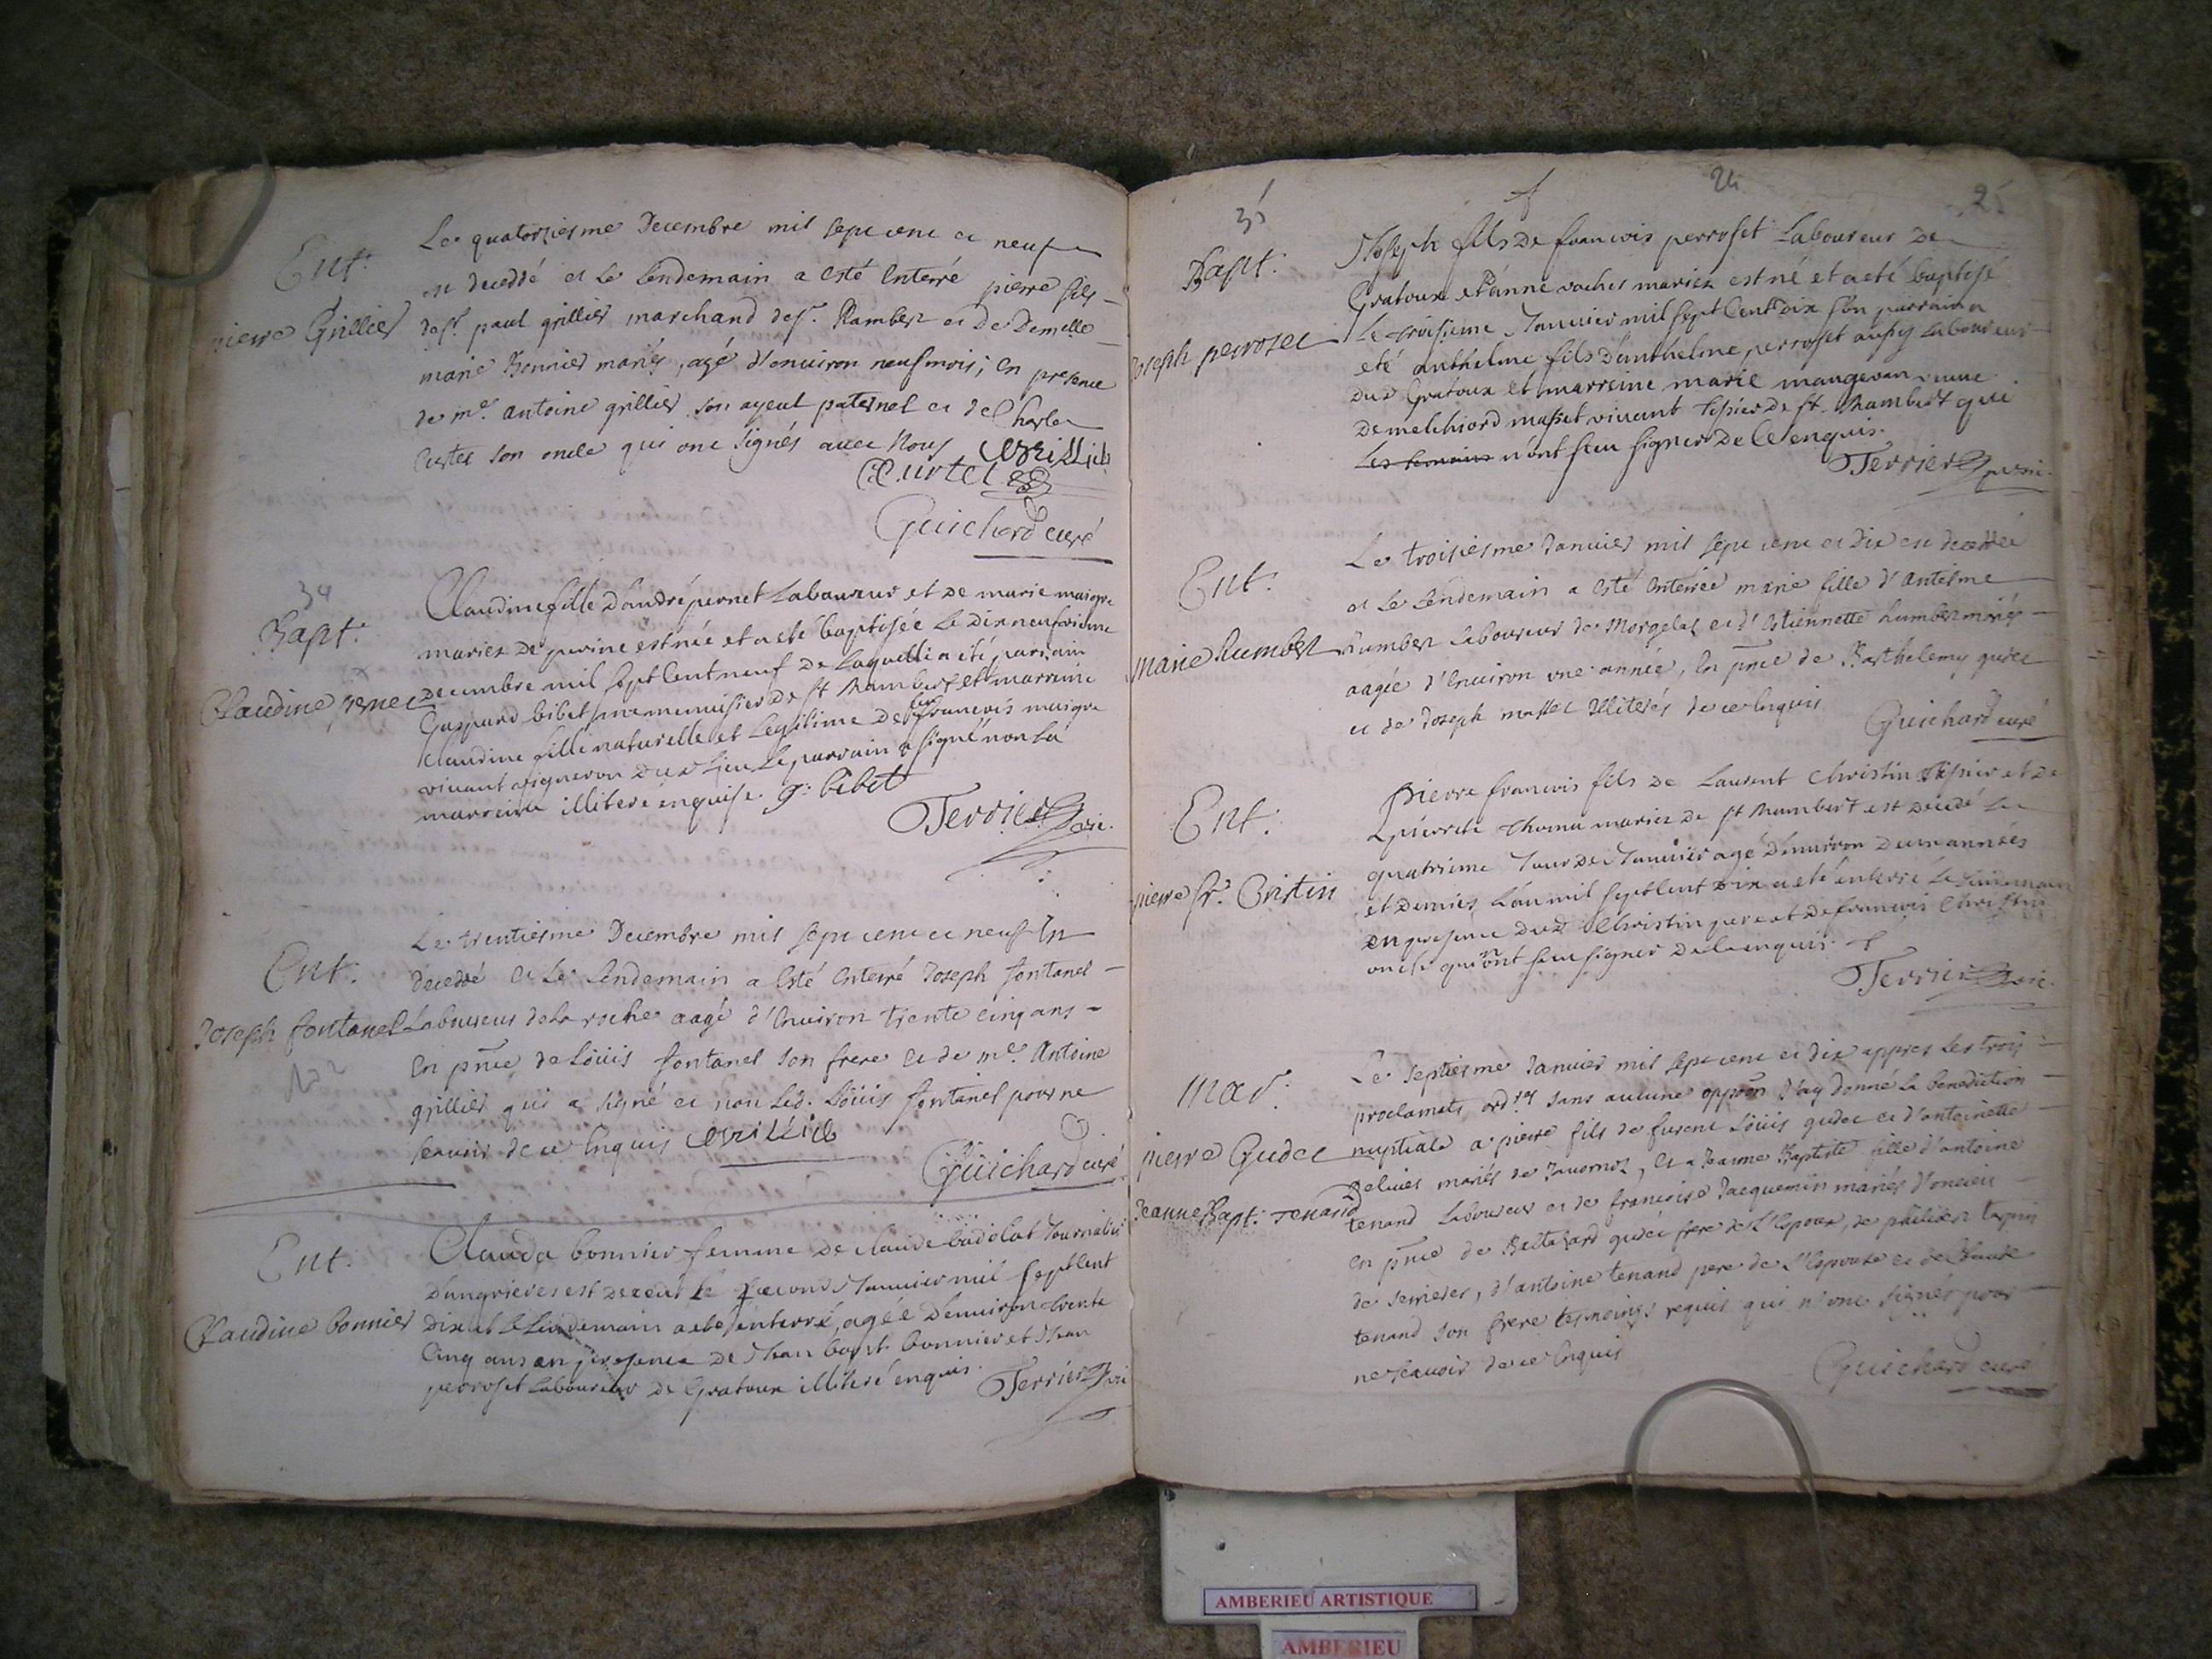 Ent.
pierre Grillier
Le quatorziesme Decembre mil sept cent et neuf
est decedé et le lendemain a esté enterré pierre fils
de sr. paul grillier marchand de st. Rambert et de Demelle
marie Bonnier mariés, agé d'environ neuf mois; en presence
de me. antoine grillier son ayeul paternel et de Charles
Curtet son oncle qui ont signés avec Nous Grillier
Curtet
Guichard curé
34
Bapt.
Claudine pernet
Claudine fille d'andré pernet Laboureur et de marie maigre
mariez de est née et a eté baptisée le dixneufvieme
decembre mil sept Cent neuf de Laquelle a été parrain
Gaspard bibet menuisier de st Rambert et marreine
Claudine fille naturelle et Legitime de feu francois maigre
vivant vigneron dud Lieu Le parrain a signé non la
marreine illiteré enquise. g: bibet
Terrier vic.
Ent.
Joseph fontanel
Le trentiesme Decembre mil sept cent et neuf est
decedé et le lendemain a esté enterré Joseph fontanel
Laboureur de la roche aagé d'environ trente cinq ans
En pnce de Loüis fontanel son frere et de me. Antoine
grillier qui a signé et non led. Loüis fontanel pour ne
scavoir de ce enquis Grillier
Guichard curé
Ent.
Claudine bonnier
Clauda bonnier femme de claude badolat Journalier
d'angrieres est decedé le second Janvier mil sept Cent
Dix et le Lendemain a eté enterré, agée d'environ trente
Cinq ans en presence de Jean bapt. bonnier et Jean
perroset Laboureur de Gratoux illiteré enquis. Terrier vic
24
25
35
Bapt.
Joseph perroset
Joseph fils de francois perroset Laboureur de
Gratoux et d'anne vaches mariez est né et a eté baptisé
Le troisieme Janvier mil sept Cent Dix son parrain a
eté anthelme fils d'anthelme perroset aussy Laboureur
dud Gratoux et marreine marie mangevan veuve
de melchiord masset vivant tissier de st. Rambert qui
Les n'ont sceu signer de Ce enquis.
Terrier vic.
Ent.
marie Lumber
Le troisiesme Janvier mil sept cent et Dix est decedée
et le lendemain a esté enterrée marie fille d'antesme
Lumber laboureur de Morgelas et d'Estiennette Lumber mariés
aagée d'environ une année, en pnce de Barthelemy gudet
et de Joseph masset illiterés de ce enquis
Guichard curé
Ent.
pierre fr. Cristin
Pierre francois fils de Laurent Christin tissier et de
pierrete Thoma mariez de st Rambert est decedé le
quatrieme Jour de Janvier agé d'environ deux années
et demies L'an mil sept Cent Dix a eté enterré le Lendemain
en presence dud Christin pere et de francois Christin
oncle qui n'ont sceu signer de Ce enquis.
Terrier vic.
Mar.
pierre Gudet
Jeanne Bapt. Tenand
Le septiesme Janvier mil sept cent et dix appres les trois
proclamats ordres sans aucune oppoon J'ay donné la benediction
nuptiale a pierre fils de furent Loüis gudet et d'antoinette
mariés de Javornoz, et a Jeanne Baptiste fille d'antoine
tenand Laboureur et de francoise Jacquemin mariés d'oncieu
En pnce de Baltazard gudet frere de L'Epoux, de philibert tarpin
de serrieres, d'antoine tenand pere de L'Epouse et de Claude
tenand son frere tesmoings requis qui n'ont signés pour
ne scavoir de ce enquis
Guichard curé
AMBERIEU ARTISTIQUE
AMBERIEU